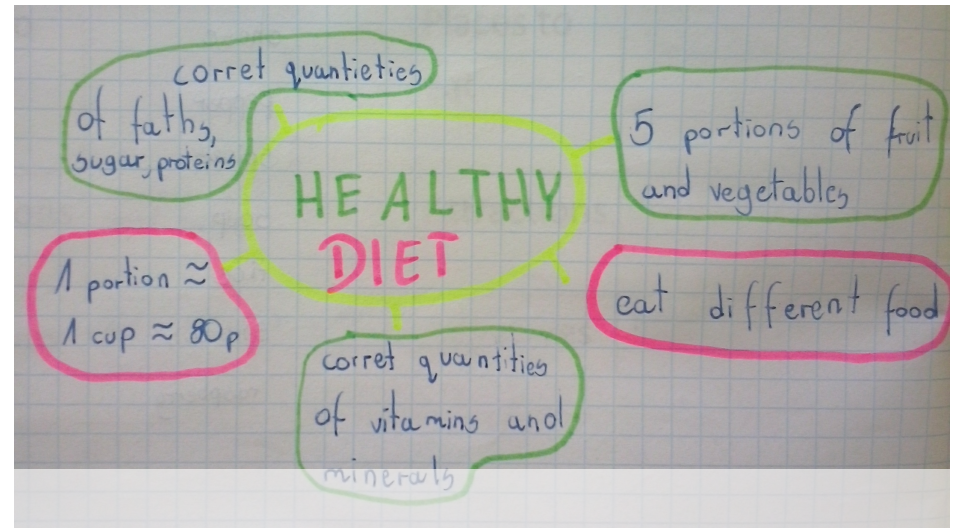 corret quantieties
of faths,
sugar, proteins
HEALTHY
DIET
5 portions of fruit
and vegetables
1 portion ≈
1 cup ≈ 80p
eat different food
corret quantities
of vitamins and
minerals